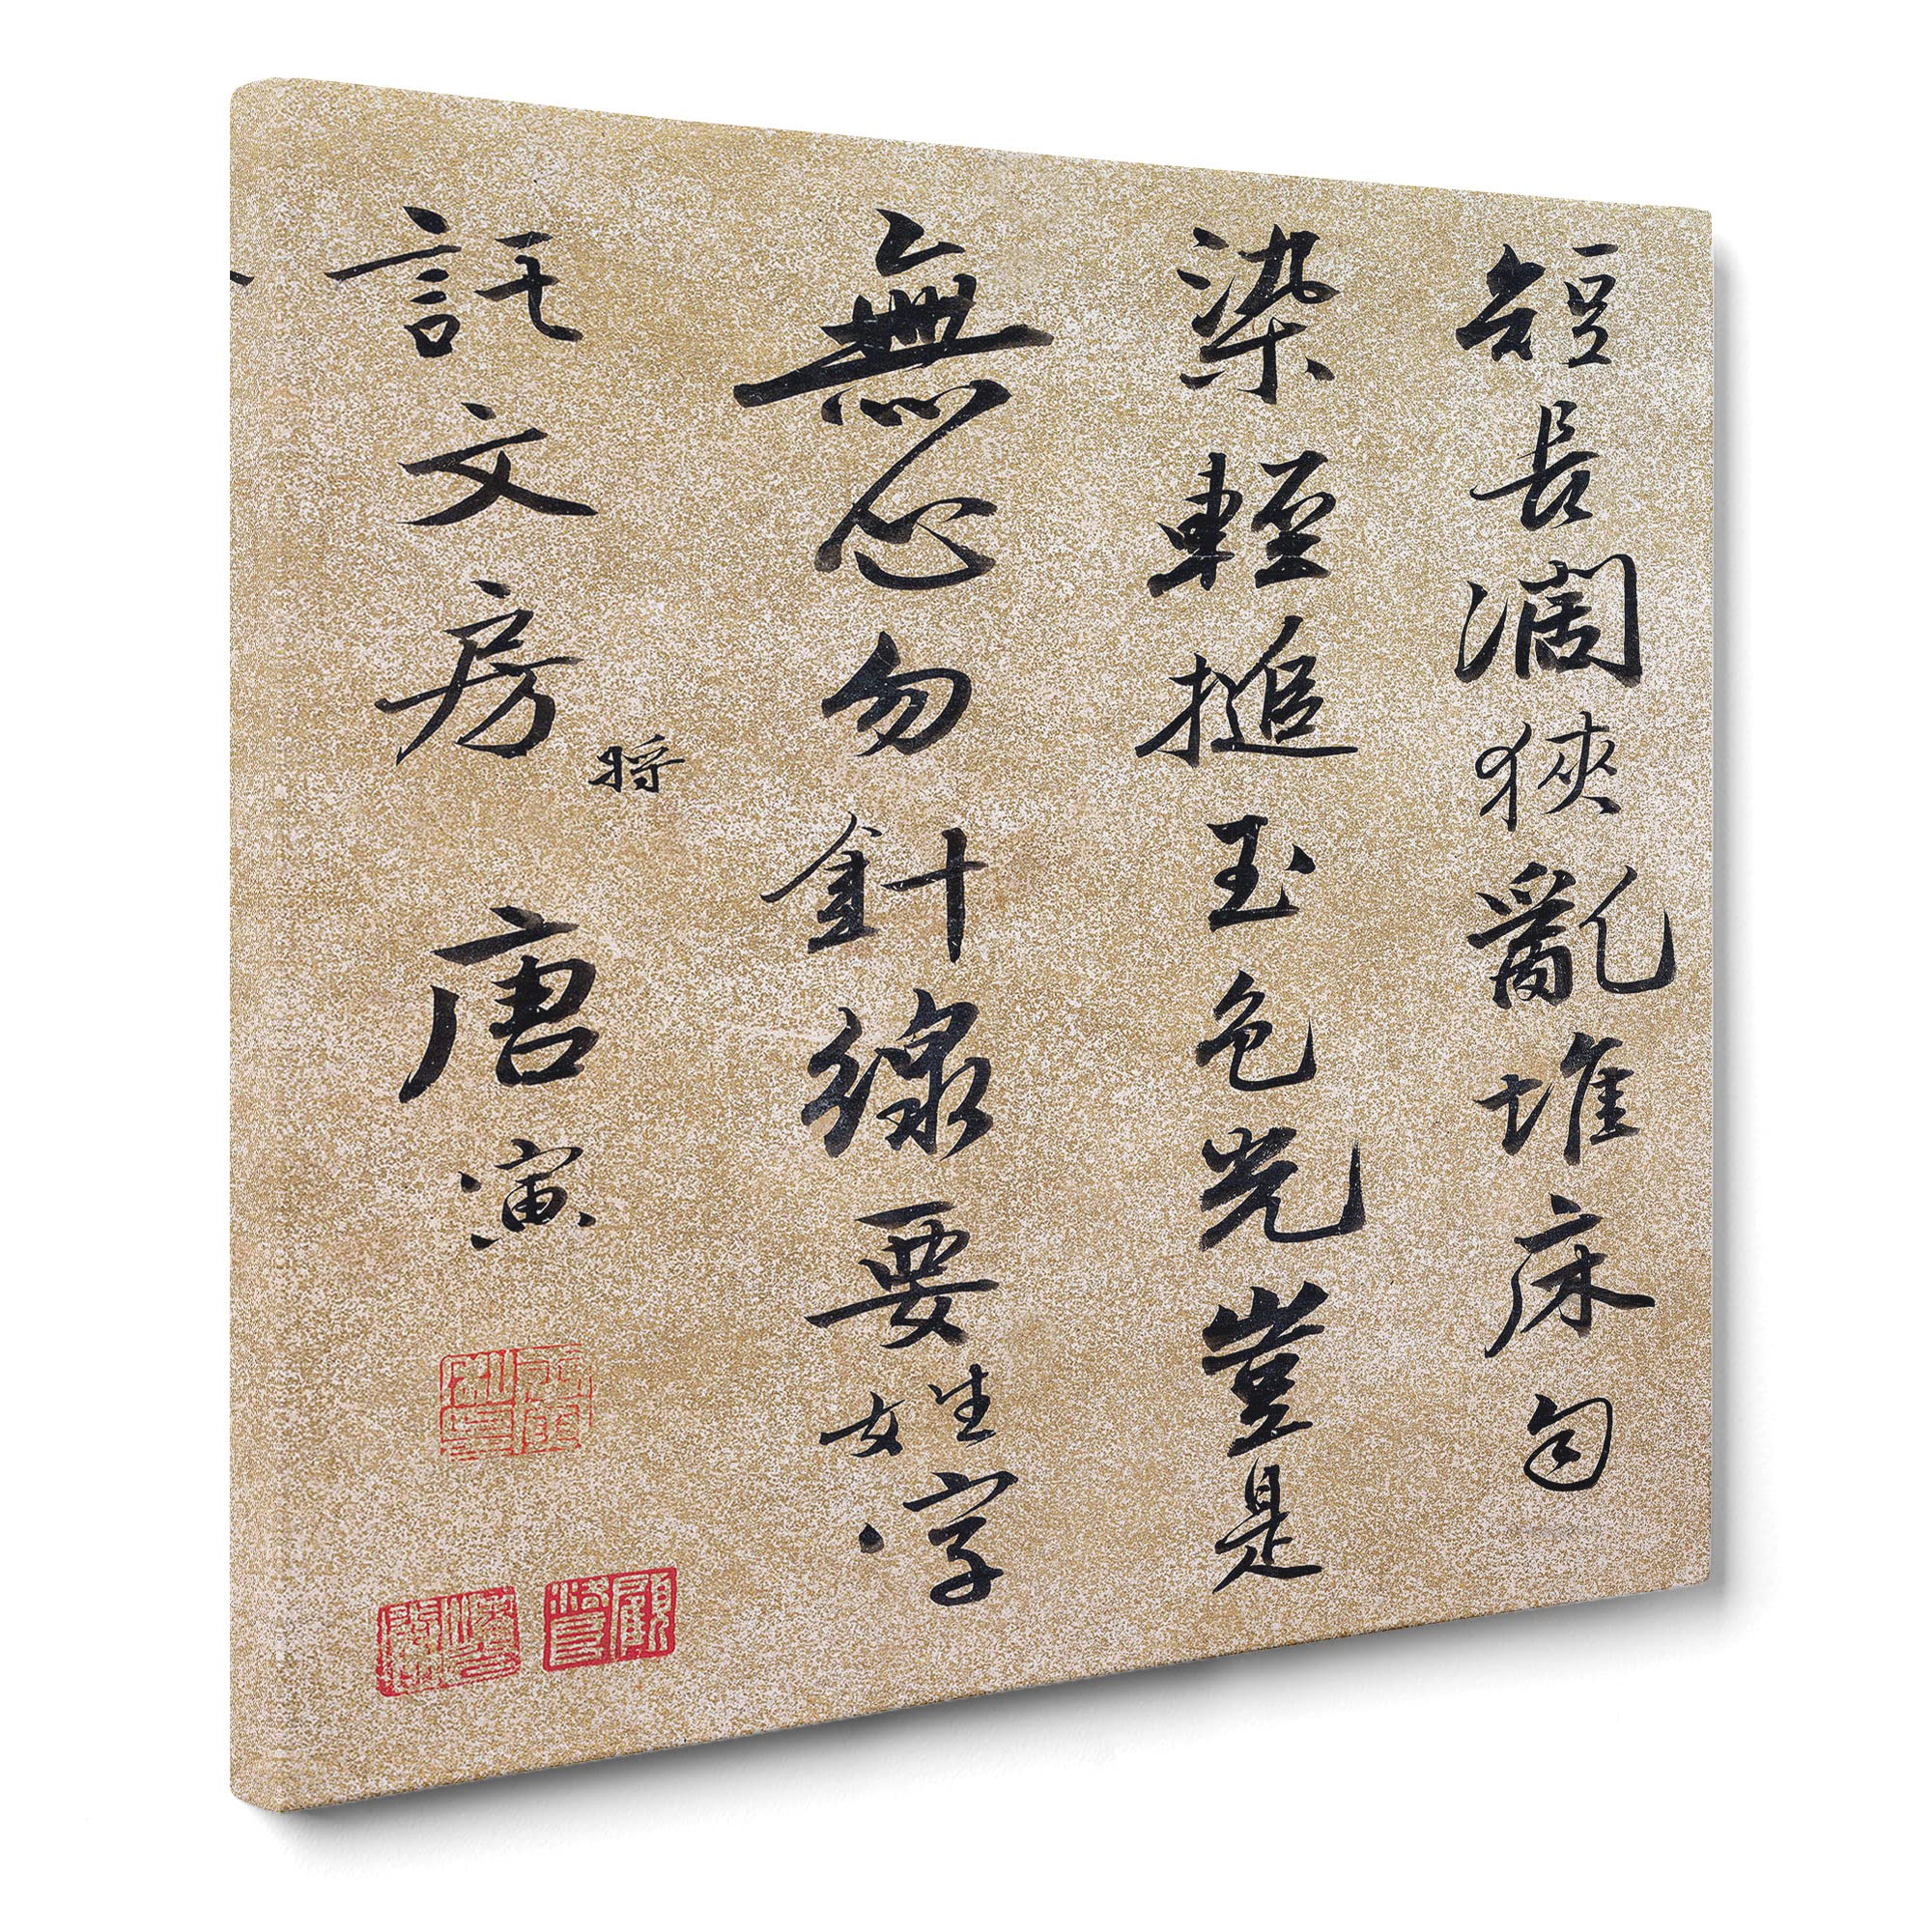 短長濶狹亂堆床匀
染輕搥玉色光豈是
無心勿針線要姓字
託文房 将
唐寅